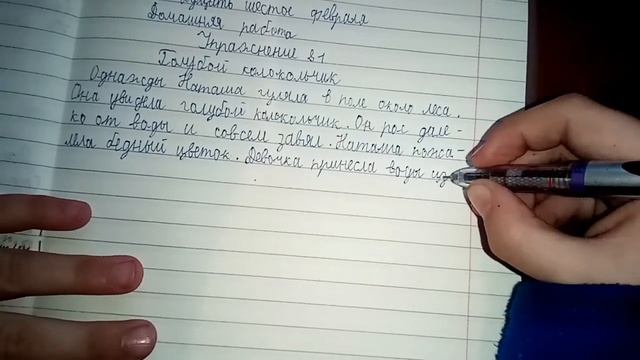 шестое февраля
Домашняя работа
Упражнение 81
Голубой колокольчик
Однажды Наташа гуляла в поле около леса.
Она увидела голубой колокольчик. Он рос дале-
ко от воды и совсем завял. Наташа пожа-
лела бедный цветок. Девочка принесла воды из